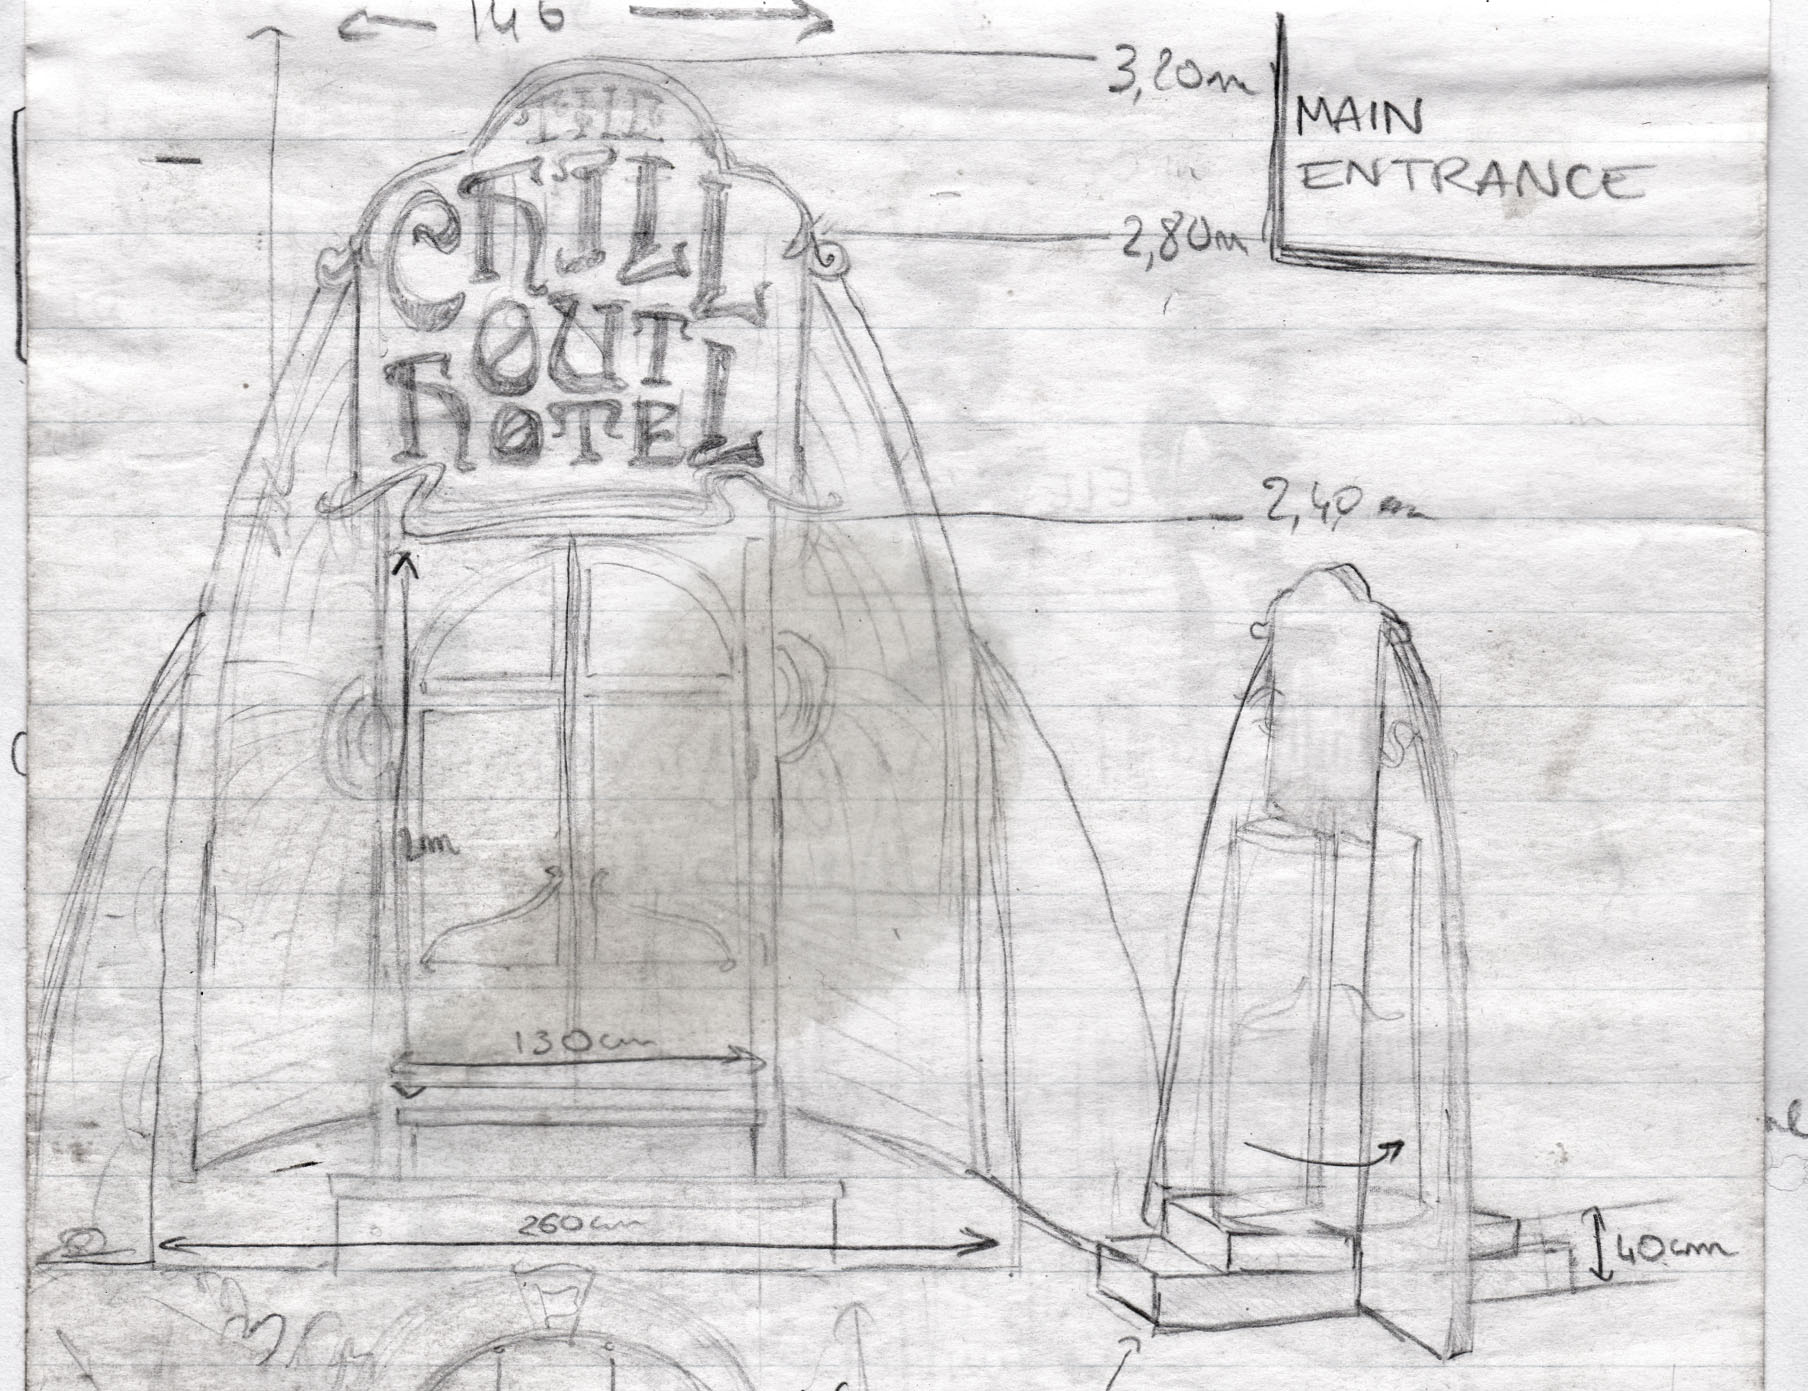 146
3,20m
MAIN
ENTRANCE
THE
CHILL
2,80m
OUT
HOTEL
2,40 m
2m
130cm
260cm
40cm